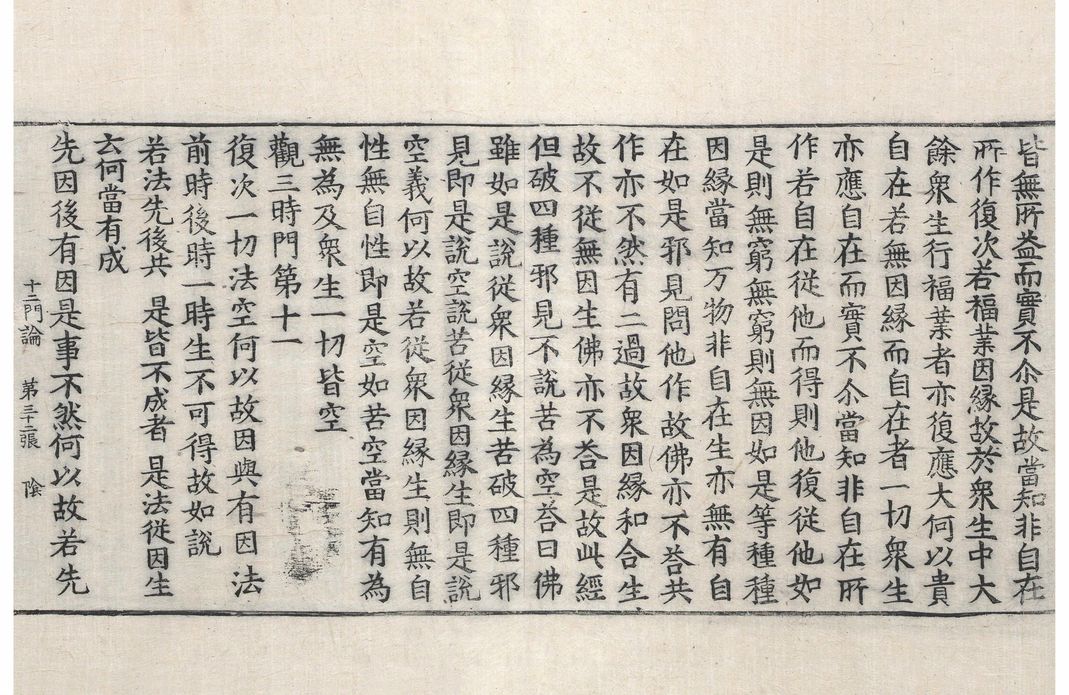 皆無所益而實不尒是故當知非自在
所作復次若福業因縁故於衆生中大
餘衆生行福業者亦復應大何以貴
自在若無因縁而自在者一切衆生
亦應自在而實不尒當知非自在所
作若自在從他而得則他復從他如
是則無窮無窮則無因如是等種種
因縁當知万物非自在生亦無有自
在如是邪見問他作故佛亦不荅共
作亦不然有二過故衆因縁和合生
故不從無因生佛亦不荅是故此經
但破四種邪見不說苦為空荅曰佛
雖如是說從衆因縁生苦破四種邪
見即是說空說苦從衆因縁生即是說
空義何以故若從衆因縁生則無自
性無自性即是空如苦空當知有為
無為及衆生一切皆空
觀三時門第十一
復次一切法空何以故因與有因法
前時後時一時生不可得故如說
若法先後共 是皆不成者 是法從因生
云何當有成
先因後有因是事不然何以故若先
十二門論 第三十二張 陰